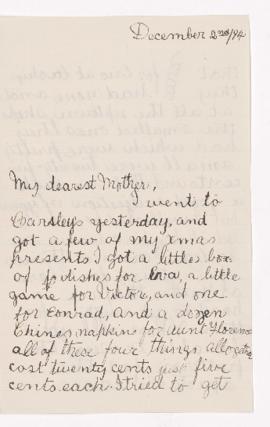 December 2nd/94
My dearest Mother,
I went to
Carsleys yesterday, and
got a few of my Xmas
presents I got a littles box
of for Eva, a little
game for Victor, and one
for Conrad, and a dozen
Chines napkins for aunt Florence
all of these four things altogether
cost twenty cents just five
cents each. I tried to get